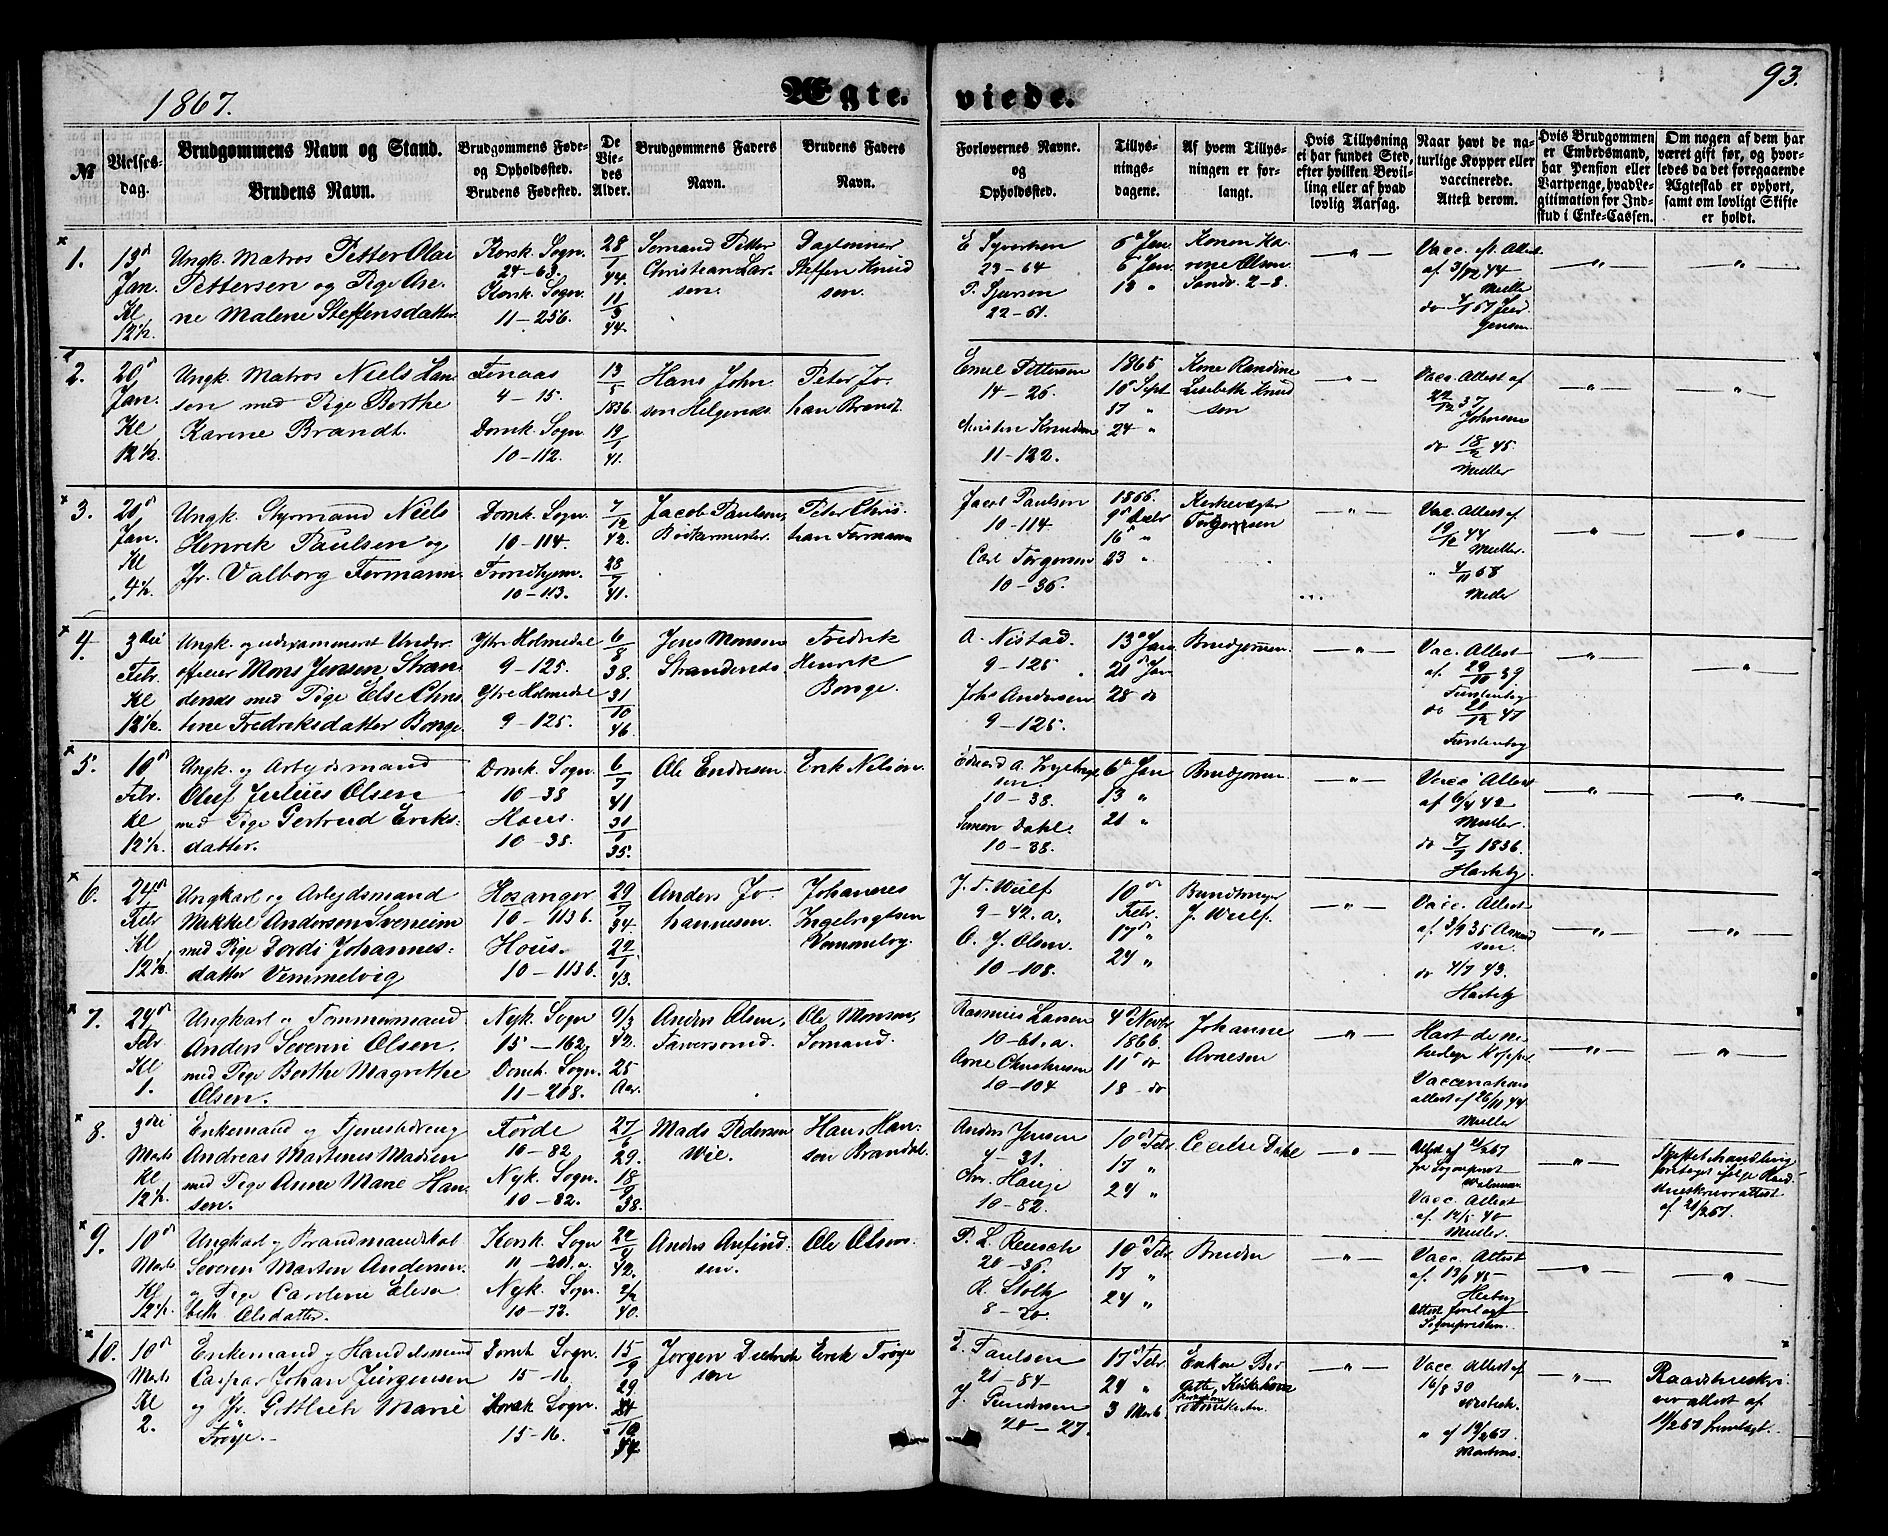 1867.
Ægte- viede.
93.
№
Vielses-
dag.
Brudgommens Navn og Stand.
Brudens Navn.
Brudgommens Føde-
og Opholdssted.
Brudens Fødested.
De
Vie-
des
Alder.
Brudgommens Faders
Navn.
Brudens Faders
Navn.
Forlovernes Navne.
og
Opholdssted.
Tillys-
nings-
dagene.
Af hvem Tillys-
ningen er for-
langt.
Hvis Tillysning
ei har fundet Sted,
efter hvilken Bevil-
ling eller af hvad
lovlig Aarsag.
Naar havt de na-
turlige Kopper eller
vaccinerede.
Attest derom.
Hvis Brudgommen
er Embedsmand,
har Pension eller
Vartpenge, hvad Le-
gitimation for Ind-
skud i Enke-Cassen.
Om nogen af dem har
været gift før, og hvor-
ledes da det foregaaende
Ægteskab er ophørt,
samt om lovligt Skifte
er holdt.
1.
13d
Jan.
Kl
12½
Ungk. Matros Petter Olai
Pettersen og Pige An-
ne Malene Steffensdatter.
Korsk. Sogn.
24-68.
Korsk. Sogn.
11-256.
28/1
44.
11/3
44.
Sømand Petter
Christian Lar-
sen.
Daglønner
Steffen Knud
sen.
E Syvertsen
23-64
22-61.
6d Jan.
13 "
Konen Ka-
rene Olsen
Sandv. 2-8.
"
Vacc. Attest
af 3/12 44
Muller
"
"
2.
20d
Jan.
Kl
12½
Ungk. Matros Niels Han-
sen med Pige Berthe
Karine Brandt.
4-15.
Domk. Sogn.
10-112.
13/5
1836.
19/1
41.
Hans John
sen Helgenæs
Peter Jo-
han Brandt
Emil Pettersen
14-26.
Christen Knudsen
11-122.
1865
10d Sept
17 "
24 "
Kone Randine
Lisebeth Knud
sen
"
Vacc. Attest af
22/12 37
Johnsen
do 18/2 45.
Muller
"
"
3.
20d
Jan.
Kl
4½.
Ungk. Styrmand Niels
Henrik Paulsen og
Jfr. Valborg Fermann.
Domk. Sogn.
10-114.
Trondhjem.
10-113.
7/12
42.
28/7
41.
Jacob Paulsen,
Bødkermester.
Peter Chris-
han Fermann
Jacob Paulsen
10-114
Carl Torgersen
10-36.
1866.
9d Decbr
16d "
23 "
Kirkevægter
Torgersen
"
Vac. Attest af
19/12 44
Muller.
" 4/11 68
"
"
4.
3die
Febr.
Kl
12½.
Ungk. og udexamineret Under-
officier Mons Jensen Stran-
denæs med Pige Else Chris
tine Fredriksdatter Borge.
Ytre Holmedal
9-125.
Ytre Holmedal
9-125.
6/8
38.
31/10
46.
Jens Monsen
Strandenæs
Fredrik
Henrik
Borge.
A. Nistad.
9-125
Johs Andersen
9-125.
13d Jan
21d Jan
28 do
Brudgommen.
"
Vac. Attest
af 29/10 39
do 21/12 47
"
"
5.
10d
Febr.
Kl
12½.
Ungk. og Arbeidsmand
Oluf Julius Olsen
med Pige Gertrud Eriks-
datter.
Domk. Sogn.
10-38
Hous.
10-38.
6/7
41
31/1
35.
Ole Endresen.
Erik Nilson.
10-38.
Simon Dahl.
10-38.
6d Jan
13 "
21 "
Brudgommen.
"
Vacc. Attest
af 6/4 42
Muller.
do 7/7 1836.
"
"
6.
24d
Febr
Kl
12½.
Ungkarl og Arbeidsmand
Mikkel Andersen
med Pige Dordi Johannes-
datter Vemmelvig
Hosanger
10-113 b.
Hous.
10-113 b.
29/7
34.
22/1
43.
Anders Jo-
hannesen.
Johannes
Ingebrigtsen
J. F. Wulf
9-42. a.
O. J. Olsen.
10-108.
10de
Febr.
17d "
24 "
J. Wulf.
"
Vacc. Attest
af 3/9 35
do 4/7 43.
"
"
7.
24d
Febr
Kl
1.
Ungkarl og Tømmermand
Anders Severin Olsen,
med Pige Berthe Magrethe
Olsen.
Nyk. Sogn
15-162
Domk. Sogn.
11-208.
9/3
42.
25
Aar.
Anders Olsen,
Ole Monsen,
Sømand.
Rasmus Larsen
10-61. a.
Arne Christensen
10-104
4d Novbr
1866.
11d do
18 - do
Johanne
Arnesen
"
Havt de na-
turlige Kopper
Vaccinations
attest af 26/11 44
Muller
"
"
8.
3die
Marts
Kl
12½.
Enkemand og Tjenestdreng
Andreas Martinus Madsen
med Pige Anne Marie Han-
sen.
Førde
10-82
Nyk. Sogn.
10-82.
27/6
29.
18/9
38.
Mads Pedersen
Wie.
Hans Han-
sen Brandal.
Anders Jensen
7-31.
Chr. Hauge
10-82.
10d Febr.
17 "
24 "
Cecilie Dahl
"
Vacc. Attest
af 12/5 40
Muller.
"
af 21/2 67.
9.
10d
Marts
Kl
12½.
Severin Martin Andersen.
og Pige Caroline Elisa
beth Olsdatter.
Korsk. Sogn
11-201. a.
Nyk. Sogn.
10-73.
22/9
42.
40.
Anders Anfind-
sen.
Ole Olsen.
P. L. Reusch
20-36.
R. Stoltz
8-20.
10d Febr.
17 "
24 "
Bruden
"
Vacc. Attest
af. 13/6 45
Attest forlagt
"
"
10.
10d
Marts
Kl
2.
Enkemand og Handelsmand
Caspar Johan Jürgensen
og Jfr. Gottlieb Marie
Trøye.
Domk Sogn.
15-16.
Korsk. Sogn.
15-16.
15/9
29.
Jørgen Diedrich
sen
Erik Trøye
E. Paulsen
21-84
J. Gundersen
20-27.
17d Febr.
24 "
3 Marts.
"
Vacc. Attest af
16/8 30
" af 19/2 67.
"
Raadstueskri-
ver attest af
11/2 67 fremlagt.